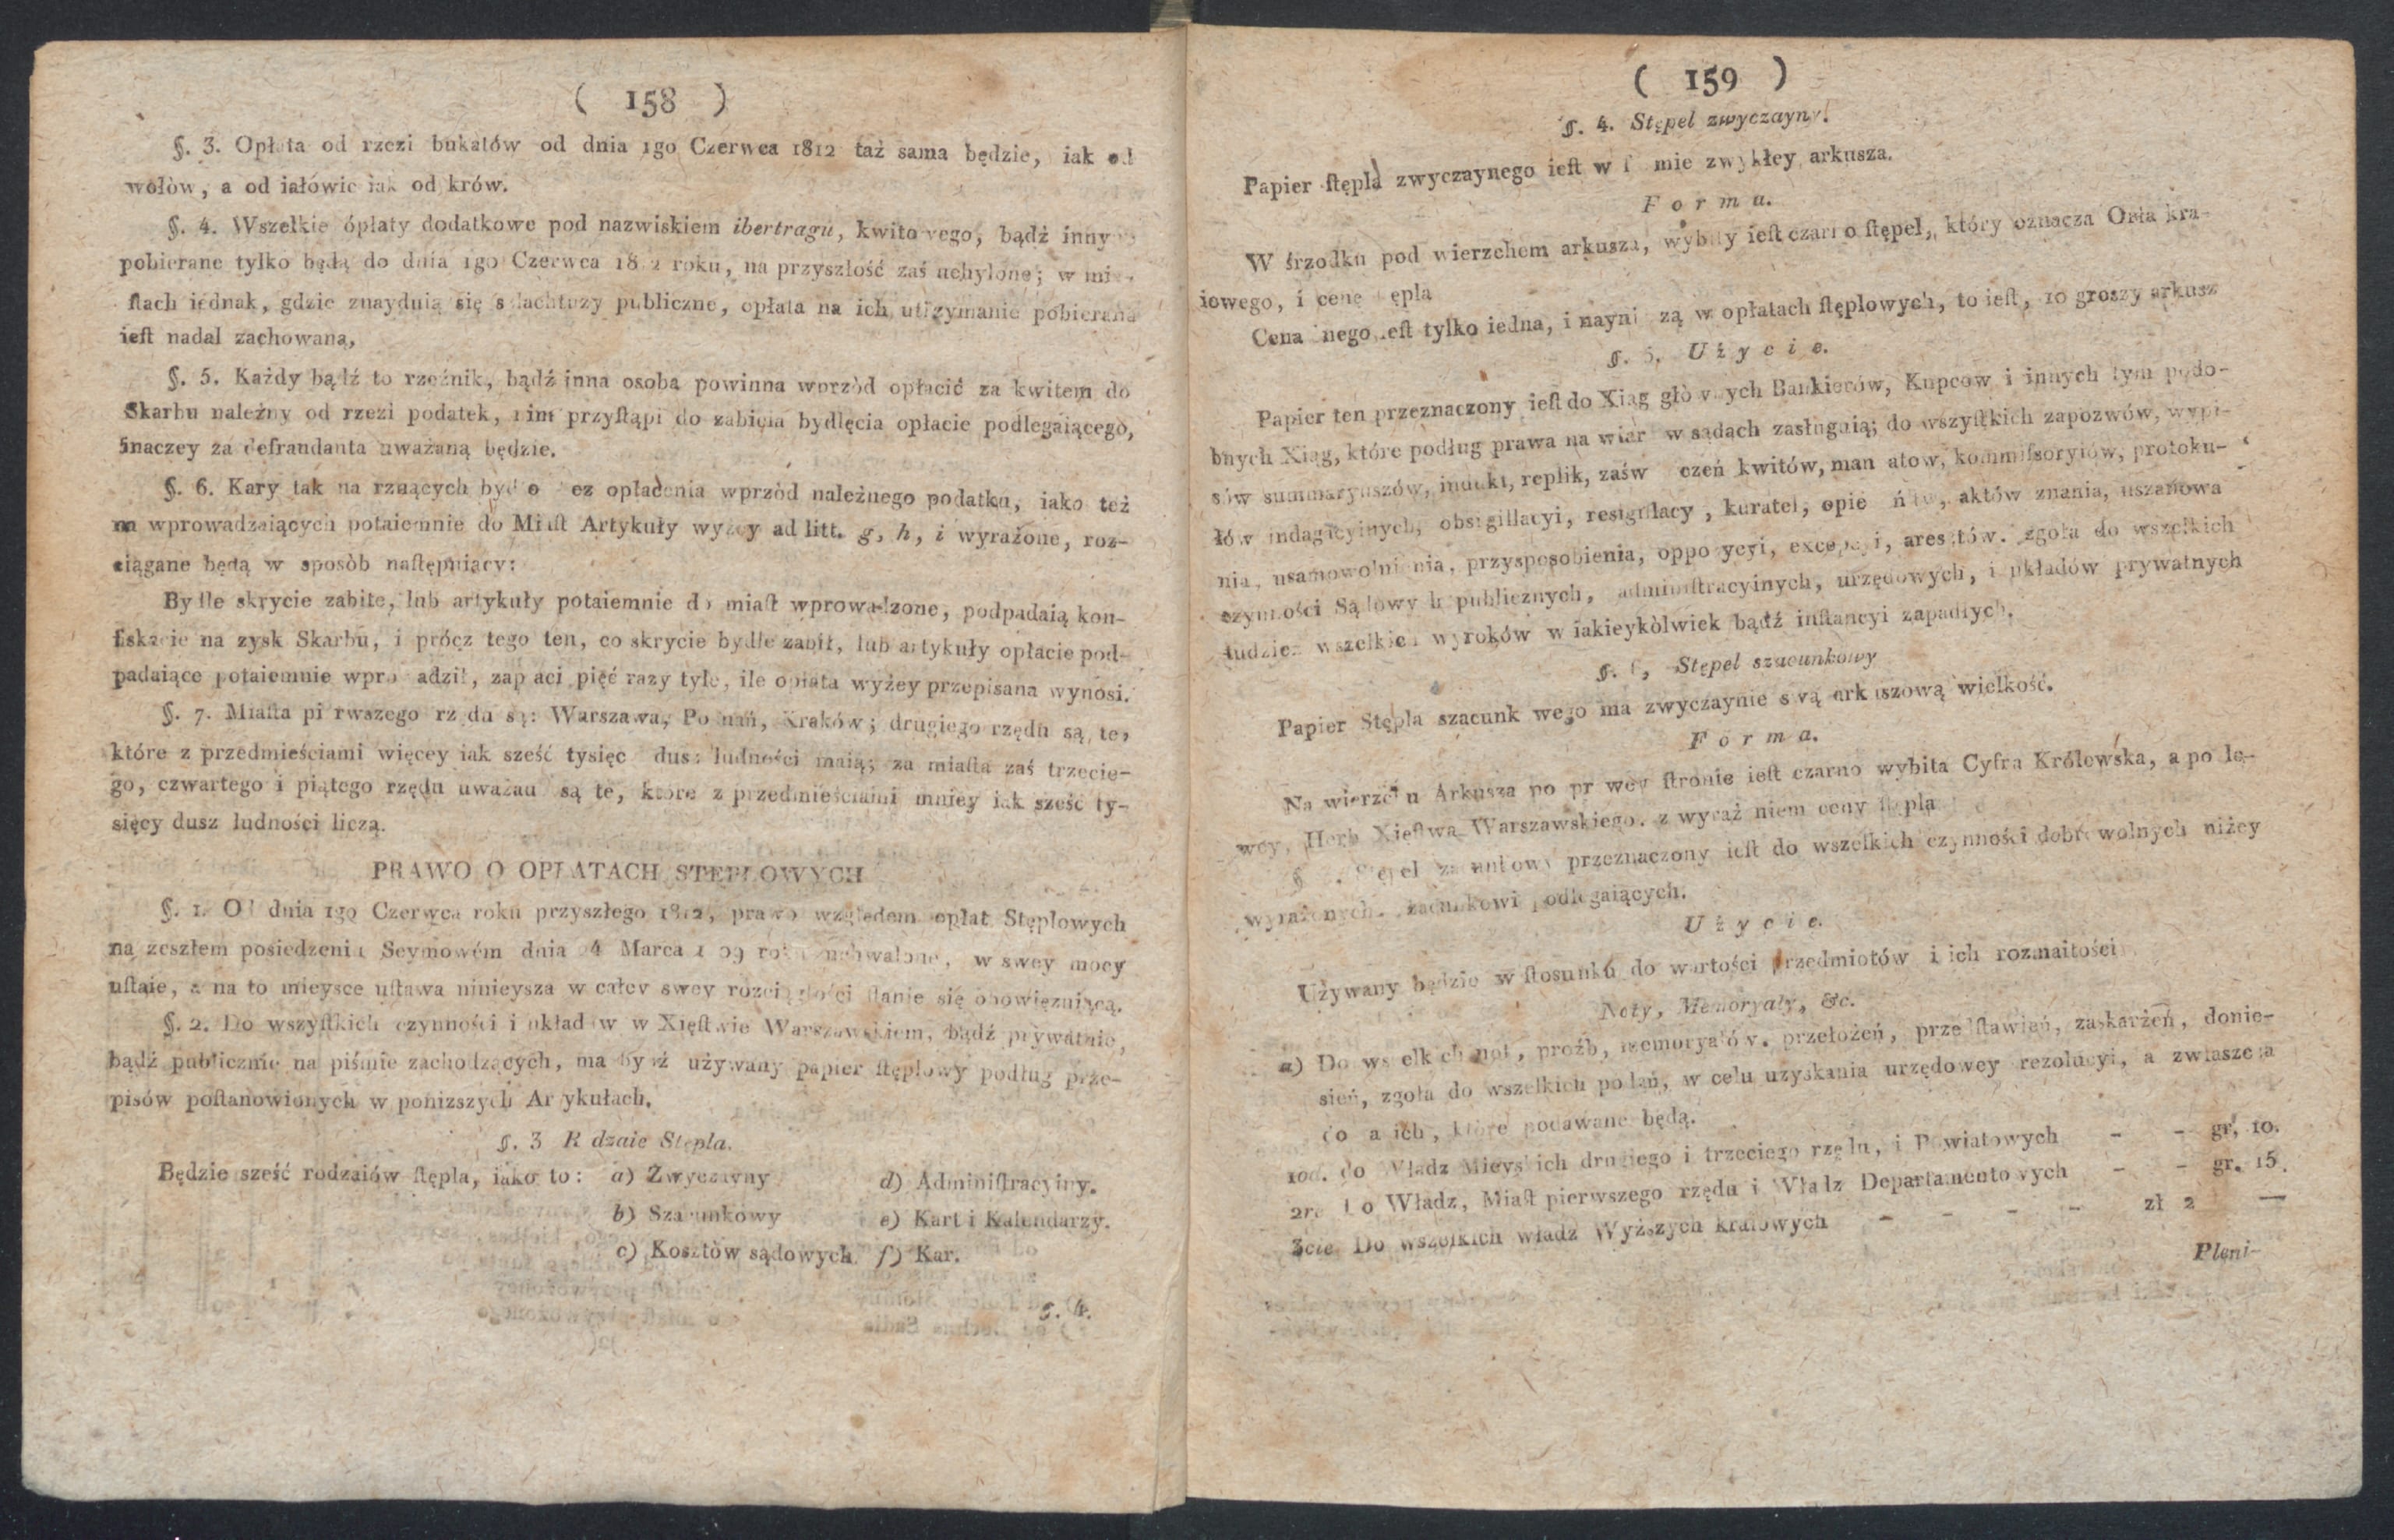 ( 158 )
§. 3. Opłata od rzezi bukatów od dnia 1go Czerwca 1812 taż sama będzie, iak od
wołòw, a od iałówic iak od krów.
§. 4. Wszelkie ópłaty dodatkowe pod nazwiskiem ibertragu, kwitowego, bądź inny
pobierane tylko będą do dnia 1go Czerwca 1812 roku, na przyszłość zaś uchylone; w mi-
ſtach iednak, gdzie znayduią się szlachtuzy publiczne, opłata na ich utrzymanie pobierana
ieſt nadal zachowaną,
§. 5. Każdy bądź to rzeźnik, bądź inna osoba powinna wprzòd opłacić za kwitem do
Skarbu należny od rzezi podatek, nim przyſtąpi do zabicia bydlęcia opłacie podlegaiącego,
inaczey za defraudanta uważaną będzie.
§. 6. Kary tak na rznących bydło bez opłacenia wprzòd należnego podatku, iako też
na wprowadzaiących potaiemnie do Miaſt Artykuły wyżey ad litt. g, h, i wyrażone, roz-
ciągane będą w sposòb naſtępuiący:
Bydle skrycie zabite, lub artykuły potaiemnie do miaſt wprowadzone, podpadaią kon-
fiskacie na zysk Skarbu, i prócz tego ten, co skrycie bydle zabił, lub artykuły opłacie pod-
padaiące potaiemnie wprowadził, zapłaci pięć razy tyle, ile opłata wyżey przepisana wynosi.
§. 7. Miaſta pierwszego rzędu są: Warszawa, Poznań, Kraków; drugiego rzędu są te,
które z przedmieściami więcey iak sześć tysięc dusz ludności maią; za miaſta zaś trzecie-
go, czwartego i piątego rzędu uważane są te, które z przedmieściami mniey iak sześć ty-
sięcy dusz ludności liczą.
PRAWO O OPŁATACH STEPLOWYCH
§. 1. Od dnia 1go Czerwca roku przyszłego 1812, prawo względem opłat Stęplowych
na zeszłem posiedzeniu Seymowém dnia 24 Marca 1809 roku uchwalone, w swey mocy
uſtaie, a na to mieysce uſtawa ninieysza w całey swey rozciągłości ſtanie się obowięzuiącą.
§. 2. Do wszyſtkich czynności i układów w Xięſtwie Warszawskiem, bądź prywatnie,
bądź publicznie na piśmie zachodzących, ma bydź używany papier ſtęplowy podług prze-
pisów poſtanowionych w poniższych Artykułach.
§. 3 Rodzaie Stępla.
Będzie sześć rodzaiów ſtępla, iako to: a) Zwyczayny d) Adminiſtracyiny.
b) Szacunkowy e) Kart i Kalendarzy.
c) Kosztòw sądowych f) Kar.
§. 4.
( 159 )
§. 4. Stępel zwyczayny.
Papier ſtępla zwyczaynego ieſt w formie zwykłey arkusza.
Forma.
W śrzodku pod wierzchem arkusza, wybity ieſt czarno ſtępel, który oznacza Orła kra-
iowego, i cenę ſtępla
Cena iego ieſt tylko iedna, i nayniższą w opłatach ſtęplowych, to ieſt, 10 groszy arkusz
§. 5. Użycie.
Papier ten przeznaczony ieſt do Xiąg głòwnych Bankierów, Kupcow i innych tym podo-
bnych Xiąg, które podług prawa na wiarę w sądach zasługuią; do wszyſtkich zapozwów, wypi-
sów summaryuszów, indukt, replik, zaświadczeń kwitów, mandatow, kommiſsoryiów, protoku-
łów indagacyinych, obsigillacyi, resigillacyi, kuratel, opiekuńſtw, aktów znania, uszanowa
nia, usamowolnienia, przysposobienia, oppozycyi, excepcyi, aresztów. zgoła do wszelkich
czynności Sądowych publicznych, adminiſtracyinych, urzędowych, i układów prywatnych
tudzież wszelkich wyroków w iakieykòlwiek bądź inſtancyi zapadłych.
§. 6, Stępel szacunkowy
Papier Stępla szacunkowego ma zwyczaynie swą arkuszową wielkość.
Forma.
Na wierzchu Arkusza po prawey ſtronie ieſt czarno wybita Cyfra Królewska, a po le-
wey, Herb Xięſtwa Warszawskiego. z wyrażeniem ceny ſtępla
§ . Stępel szacunkowy przeznaczony ieſt do wszelkich czynności dobrowolnych niżey
wyrażonych szacunkowi podlegaiących.
Użycie.
Używany będzie w ſtosunku do wartości przedmiotów i ich rozmaitości
Noty, Memoryały, &c.
a) Do wszelkich not, proźb, memoryałów. przełożeń, przedſtawień, zaskarżeń, donie-
sień, zgoła do wszelkich podań, w celu uzyskania urzędowey rezolucyi, a zwłaszcza
do, które podawane będą.
1od. do Władz Mieyskich drugiego i trzeciego rzędu, i Powiatowych - - gr. 10.
2re do Władz, Miaſt pierwszego rzędu i Władz Departamentowych - - gr. 15.
3cie Do wszelkich władz Wyższych kraiowych - - - - zł 2 —
Pleni-